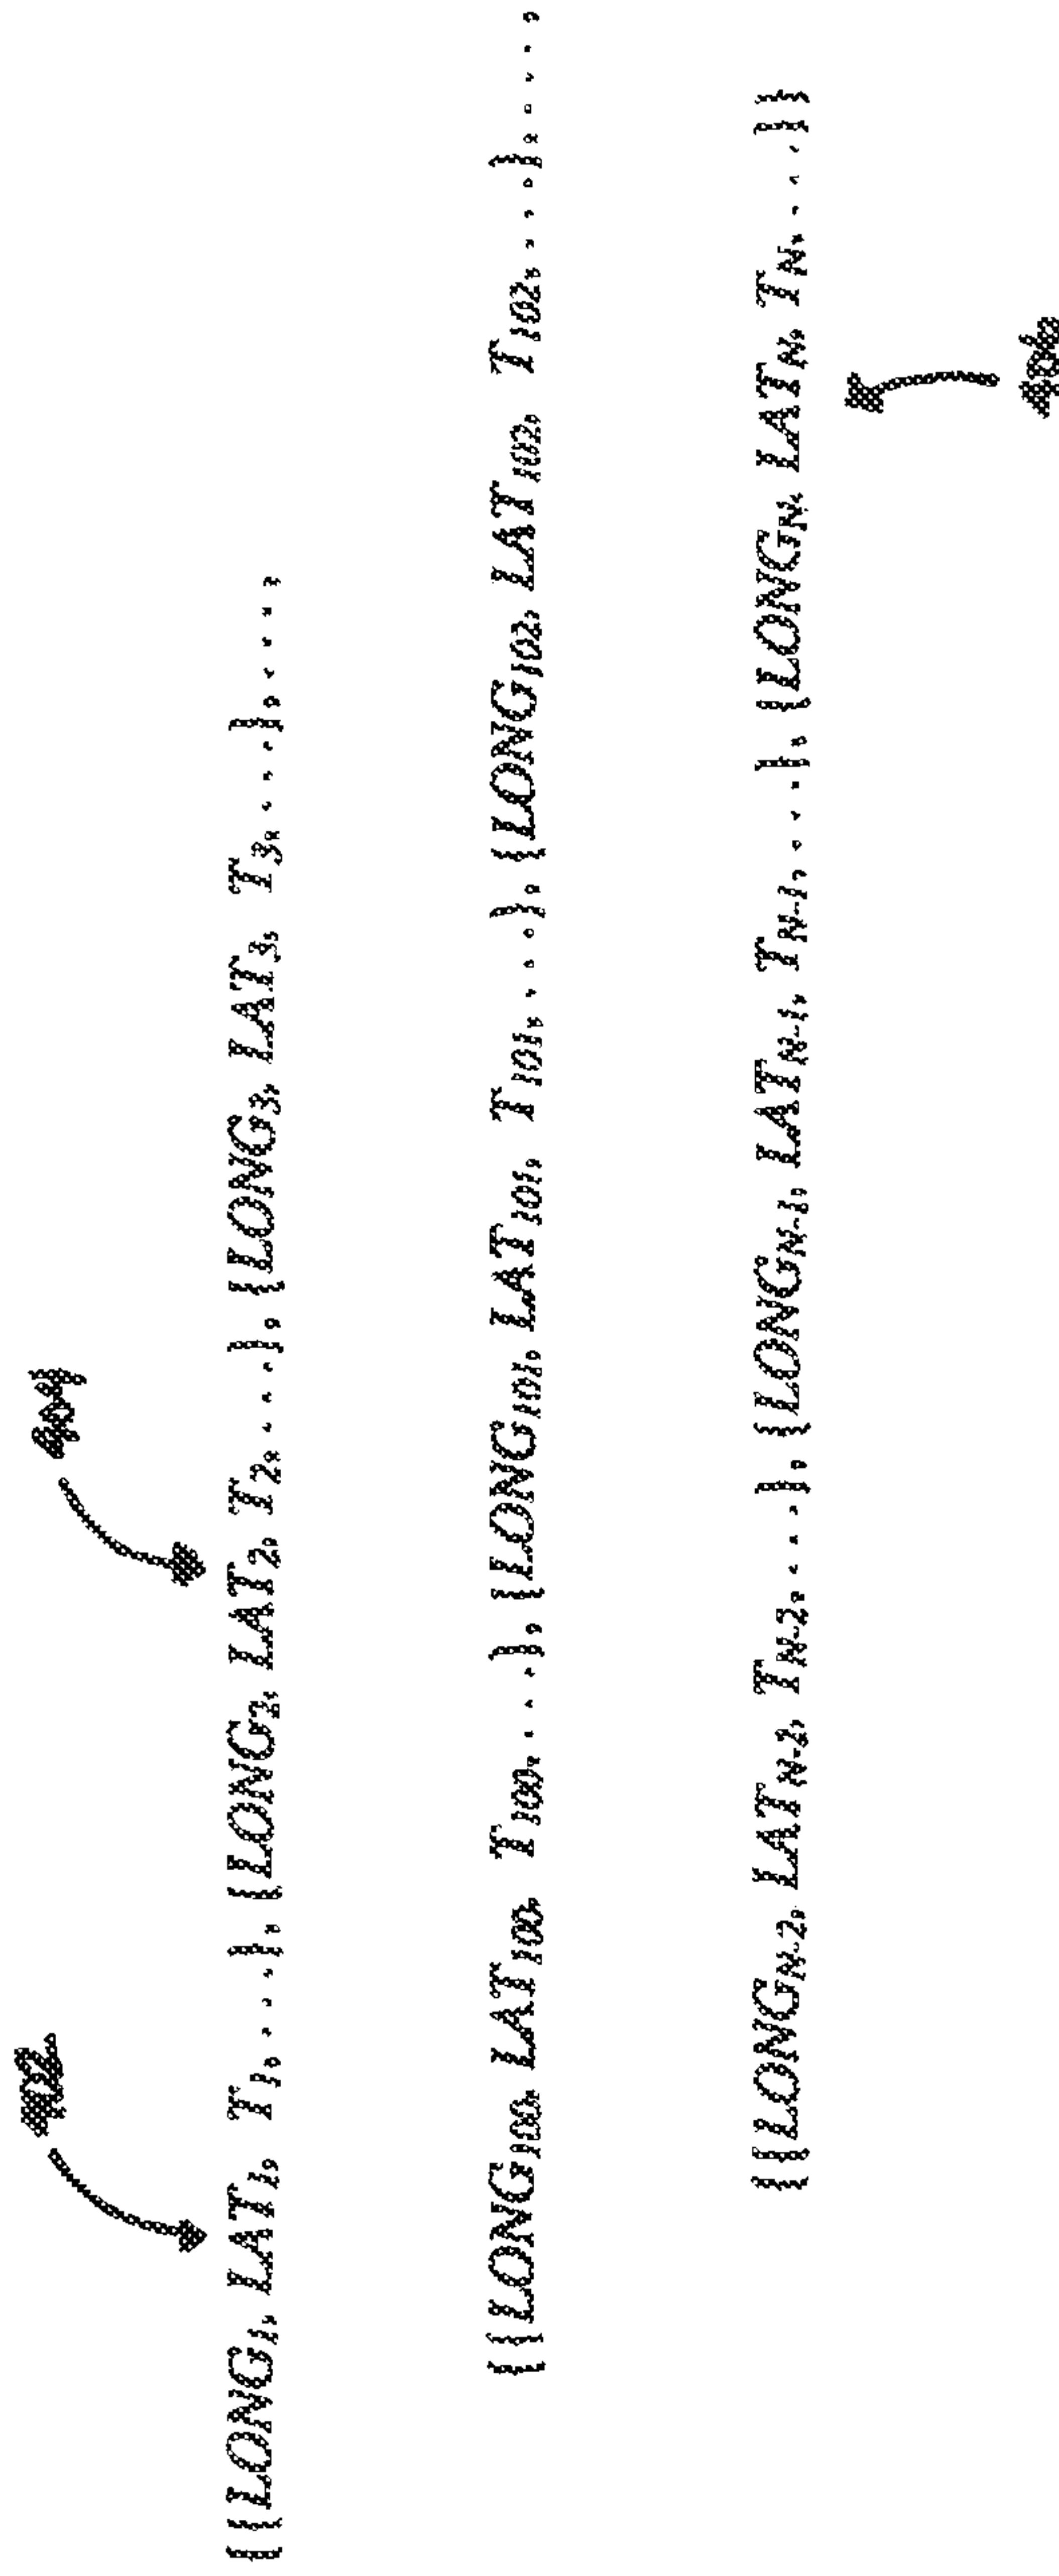 402 404
{{LONG₁, LAT₁, T₁, . . .}, {LONG₂, LAT₂, T₂, . . .}, {LONG₃, LAT₃, T₃, . . .}, . . . ,
{{LONG₁₀₀, LAT₁₀₀, T₁₀₀, . . .}, {LONG₁₀₁, LAT₁₀₁, T₁₀₁, . . .}, {LONG₁₀₂, LAT₁₀₂, T₁₀₂, . . .}, . . . ,
{{LONG_N-2, LAT_N-2, T_N-2, . . .}, {LONG_N-1, LAT_N-1, T_N-1, . . .}, {LONG_N, LAT_N, T_N, . . .}}